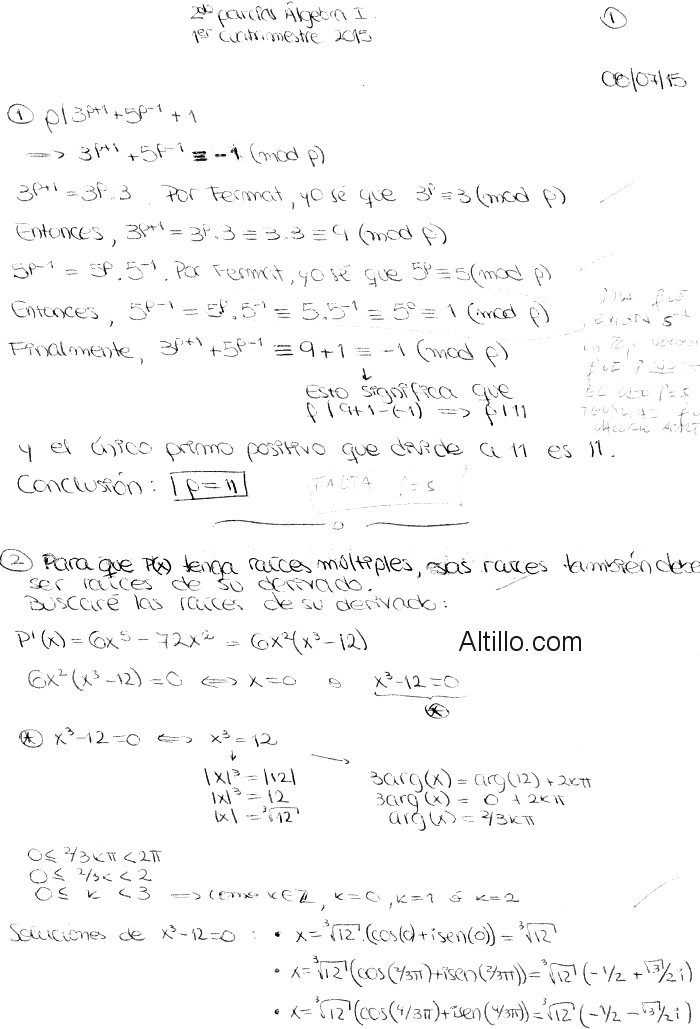 2do parcial Álgebra I
1er cuatrimestre 2015
1
08/07/15
① p | 3^{p+1} + 5^{p-1} + 1
⟹ 3^{p+1} + 5^{p-1} ≡ -1 (mod p)
3^{p+1} = 3^p . 3 . Por Fermat, yo sé que 3^p ≡ 3 (mod p)
Entonces, 3^{p+1} = 3^p . 3 ≡ 3 . 3 ≡ 9 (mod p)
5^{p-1} = 5^p . 5^{-1} . Por Fermat, yo sé que 5^p ≡ 5 (mod p)
Entonces, 5^{p-1} = 5^p . 5^{-1} ≡ 5 . 5^{-1} ≡ 5^0 ≡ 1 (mod p)
Finalmente, 3^{p+1} + 5^{p-1} ≡ 9 + 1 ≡ -1 (mod p)
↓
Esto significa que
p | 9+1-(-1) ⟹ p | 11
y el único primo positivo que divide a 11 es 11.
Conclusión: p = 11
FALTA p = 5
② Para que P(x) tenga raíces múltiples, esas raíces también debe
ser raíces de su derivado.
Buscaré las raíces de su derivado:
P'(x) = 6x^5 - 72x^2 = 6x^2(x^3 - 12)
Altillo.com
6x^2(x^3 - 12) = 0 ⟺ x = 0 ó x^3 - 12 = 0
⊛
⊛ x^3 - 12 = 0 ⟺ x^3 = 12
|x|^3 = |12|
|x|^3 = 12
|x| = ∛12
3arg(x) = arg(12) + 2kπ
3arg(x) = 0 + 2kπ
arg(x) = 2/3kπ
0 ≤ 2/3kπ < 2π
0 ≤ 2/3k < 2
0 ≤ k < 3 ⟹ como k ∈ Z, k = 0, k = 1 ó k = 2
Soluciones de x^3 - 12 = 0 : • x = ∛12 . (cos(0) + i sen(0)) = ∛12
• x = ∛12 (cos(2/3π) + i sen(2/3π)) = ∛12 (-1/2 + √3/2 i)
• x = ∛12 (cos(4/3π) + i sen(4/3π)) = ∛12 (-1/2 - √3/2 i)